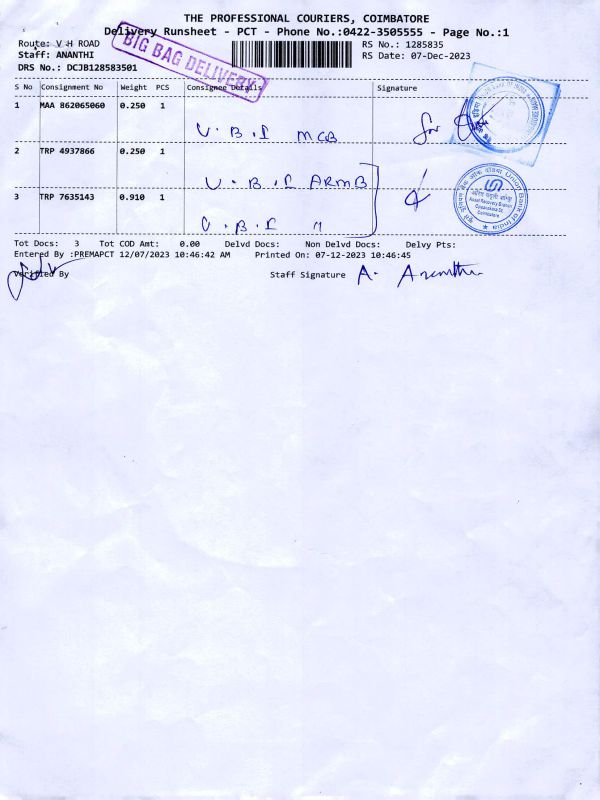 THE PROFESSIONAL COURIERS, COIMBATORE
Delivery Runsheet - PCT - Phone No.:0422-3505555 - Page No.:1
Route: V H ROAD
RS No.: 1285835
Staff: ANANTHI
RS Date: 07-Dec-2023
DRS No.: DCJB128583501
BIG BAG DELIVERY
S No Consignment No Weight PCS Consignee Details Signature
1 MAA 862065060 0.250 1
U.B.I MCB for
2 TRP 4937866 0.250 1
U.B.I ARMB
3 TRP 7635143 0.910 1
U.B.I "
Union Bank of India
Asset Recovery Branch
Coimbatore
Tot Docs: 3 Tot COD Amt: 0.00 Delvd Docs: Non Delvd Docs: Delvy Pts:
Entered By :PREMAPCT 12/07/2023 10:46:42 AM Printed On: 07-12-2023 10:46:45
Verified By Staff Signature A. Ananthi